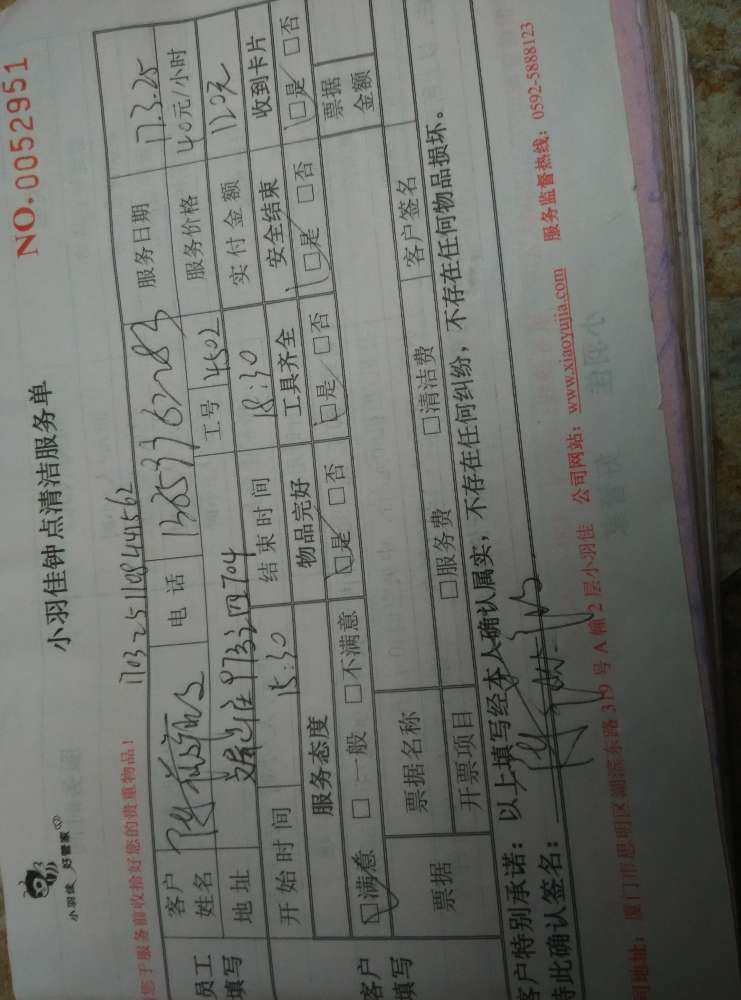 小羽佳 好管家
小羽佳钟点清洁服务单
NO.0052951
您于服务前收拾好您的贵重物品!
1703251108441562
员工填写 客户姓名 电话 服务日期 17.3.25
工号 4502 服务价格 40元/小时
地址 704 实付金额 120元
开始时间 15:30 结束时间 18:30
客户填写 服务态度 物品完好 工具齐全 安全结束 收到卡片
☑满意 □一般 □不满意 ☑是 □否 ☑是 □否 ☑是 □否 ☑是 □否
票据 票据名称 票据金额
开票项目 □服务费 □清洁费 客户签名
客户特别承诺:以上填写经本人确认属实,不存在任何纠纷,不存在任何物品损坏。
特此确认签名:
司地址:厦门市思明区湖滨东路319号A幢2层小羽佳 公司网站:www.xiaoyujia.com 服务监督热线:0592-5888123